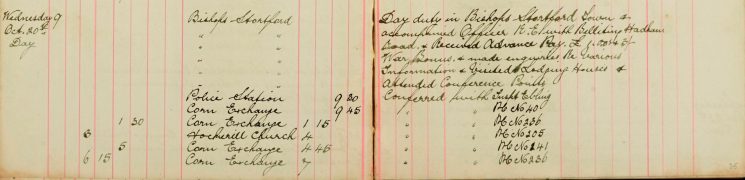 Wednesday 9 Bishops Stortford Day duty in Bishops Stortford Town &
Oct. 30th " accompanied Officer R.E. with Billeting Hadham
Day " Road, & Received Advance Pay. £
" War Bonus, & made enquiries Re Various
" Information & Visited Lodging Houses &
" Attended Conference Points
Police Station 9 30 Conferred with Insp
Corn Exchange 9 45 " PC No 40
1 30 Corn Exchange 1 15 " PC No 236
3 Hockerill Church 4 " PC No 205
5 Corn Exchange 4 45 " PC No 241
6 15 Corn Exchange 7 " PC No 236